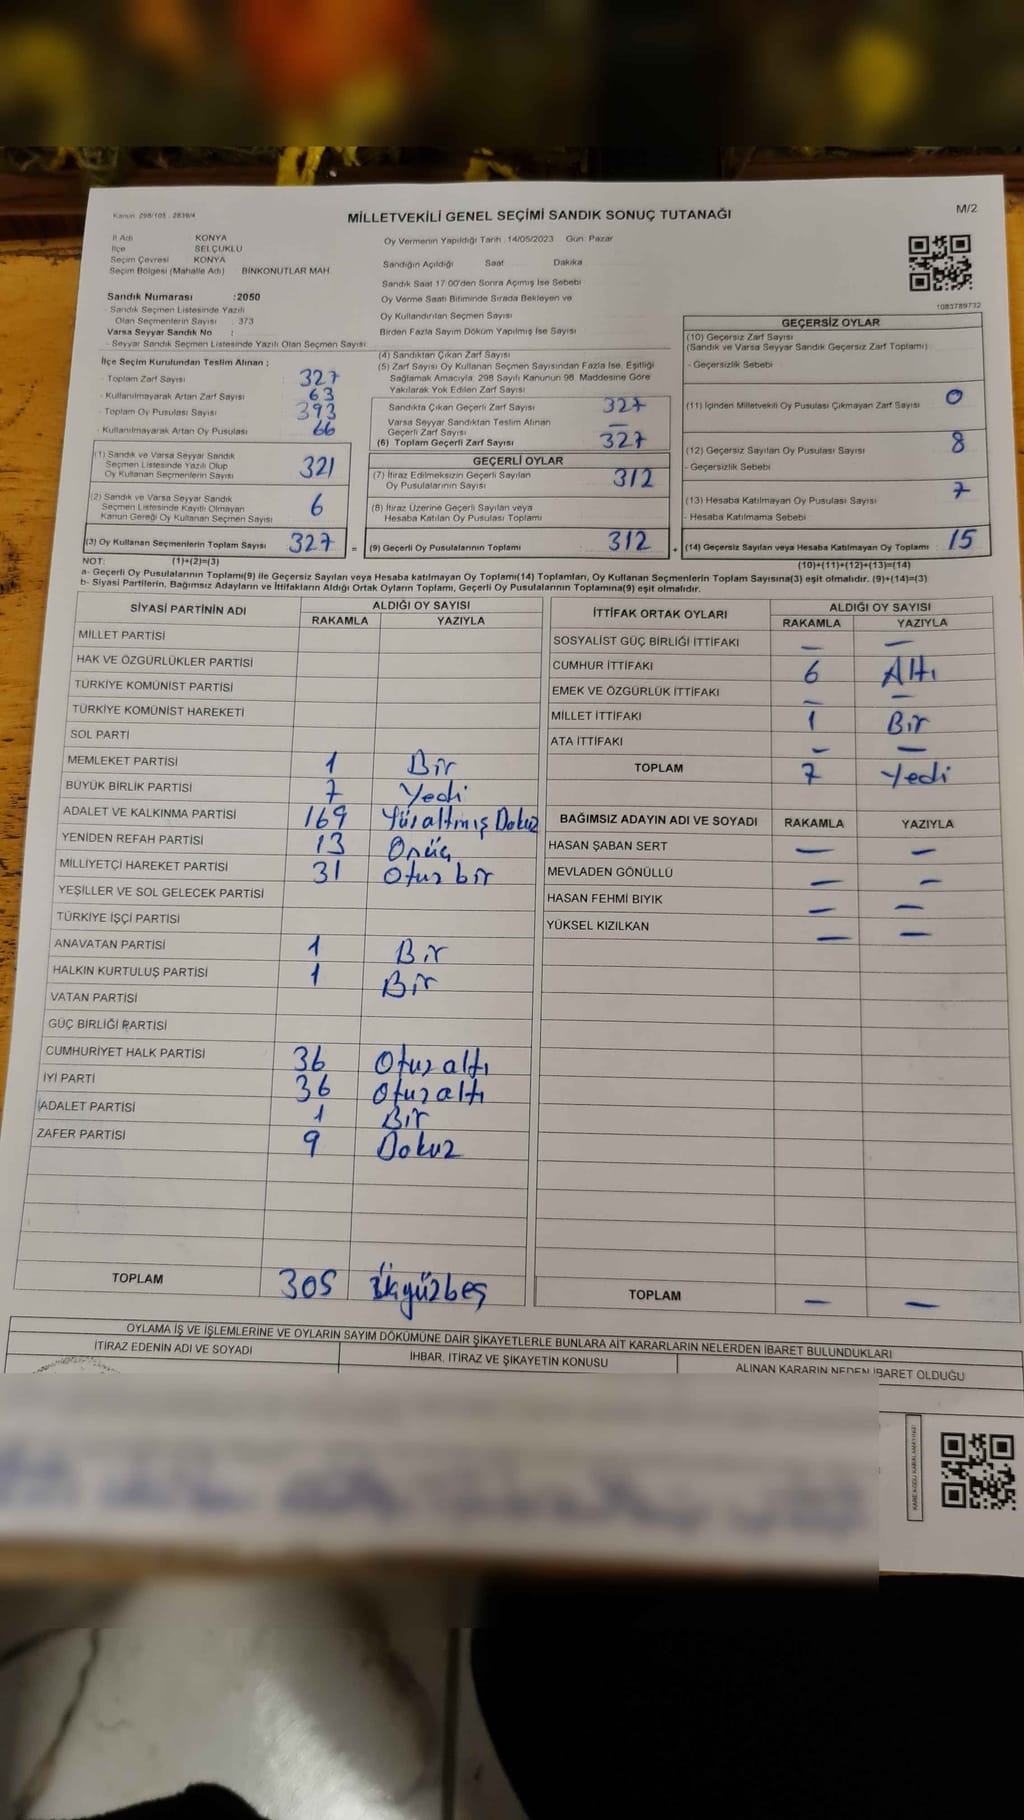 Kanun: 298/105 - 2839/4
MİLLETVEKİLİ GENEL SEÇİMİ SANDIK SONUÇ TUTANAĞI
M/2
İl Adı KONYA
İlçe SELÇUKLU
Seçim Çevresi KONYA
Seçim Bölgesi (Mahalle Adı) BİNKONUTLAR MAH.
Sandık Numarası :2050
- Sandık Seçmen Listesinde Yazılı
Olan Seçmenlerin Sayısı : 373
Varsa Seyyar Sandık No :
- Seyyar Sandık Seçmen Listesinde Yazılı Olan Seçmen Sayısı:
Oy Vermenin Yapıldığı Tarih :14/05/2023 Gün: Pazar
Sandığın Açıldığı Saat Dakika
Sandık Saat 17:00'den Sonra Açımış İse Sebebi
Oy Verme Saati Bitiminde Sırada Bekleyen ve
Oy Kullandırılan Seçmen Sayısı
Birden Fazla Sayım Döküm Yapılmış İse Sayısı
1083789732
İlçe Seçim Kurulundan Teslim Alınan ;
- Toplam Zarf Sayısı 327
- Kullanılmayarak Artan Zarf Sayısı 63
- Toplam Oy Pusulası Sayısı 393
- Kullanılmayarak Artan Oy Pusulası 66
(1) Sandık ve Varsa Seyyar Sandık
Seçmen Listesinde Yazılı Olup
Oy Kullanan Seçmenlerin Sayısı 321
(2) Sandık ve Varsa Seyyar Sandık
Seçmen Listesinde Kayıtlı Olmayan
Kanun Gereği Oy Kullanan Seçmen Sayısı 6
(3) Oy Kullanan Seçmenlerin Toplam Sayısı 327 =
(4) Sandıktan Çıkan Zarf Sayısı
(5) Zarf Sayısı Oy Kullanan Seçmen Sayısından Fazla İse, Eşitliği
Sağlamak Amacıyla, 298 Sayılı Kanunun 98. Maddesine Göre
Yakılarak Yok Edilen Zarf Sayısı
Sandıkta Çıkan Geçerli Zarf Sayısı 327
Varsa Seyyar Sandıktan Teslim Alınan
Geçerli Zarf Sayısı —
(6) Toplam Geçerli Zarf Sayısı 327
GEÇERLİ OYLAR
(7) İtiraz Edilmeksizin Geçerli Sayılan
Oy Pusulalarının Sayısı 312
(8) İtiraz Üzerine Geçerli Sayılan veya
Hesaba Katılan Oy Pusulası Toplamı
(9) Geçerli Oy Pusulalarının Toplamı 312 +
GEÇERSİZ OYLAR
(10) Geçersiz Zarf Sayısı
(Sandık ve Varsa Seyyar Sandık Geçersiz Zarf Toplamı)
- Geçersizlik Sebebi
(11) İçinden Milletvekili Oy Pusulası Çıkmayan Zarf Sayısı 0
(12) Geçersiz Sayılan Oy Pusulası Sayısı 8
- Geçersizlik Sebebi
(13) Hesaba Katılmayan Oy Pusulası Sayısı 7
- Hesaba Katılmama Sebebi
(14) Geçersiz Sayılan veya Hesaba Katılmayan Oy Toplamı 15
NOT: (1)+(2)=(3) (10)+(11)+(12)+(13)=(14)
a- Geçerli Oy Pusulalarının Toplamı(9) ile Geçersiz Sayılan veya Hesaba katılmayan Oy Toplamı(14) Toplamları, Oy Kullanan Seçmenlerin Toplam Sayısına(3) eşit olmalıdır. (9)+(14)=(3)
b- Siyasi Partilerin, Bağımsız Adayların ve İttifakların Aldığı Ortak Oyların Toplamı, Geçerli Oy Pusulalarının Toplamına(9) eşit olmalıdır.
SİYASİ PARTİNİN ADI ALDIĞI OY SAYISI
RAKAMLA YAZIYLA
MİLLET PARTİSİ
HAK VE ÖZGÜRLÜKLER PARTİSİ
TÜRKİYE KOMÜNİST PARTİSİ
TÜRKİYE KOMÜNİST HAREKETİ
SOL PARTİ
MEMLEKET PARTİSİ 1 Bir
BÜYÜK BİRLİK PARTİSİ 7 Yedi
ADALET VE KALKINMA PARTİSİ 169 Yüzaltmış Dokuz
YENİDEN REFAH PARTİSİ 13 Onüç
MİLLİYETÇİ HAREKET PARTİSİ 31 Otuz bir
YEŞİLLER VE SOL GELECEK PARTİSİ
TÜRKİYE İŞÇİ PARTİSİ
ANAVATAN PARTİSİ 1 Bir
HALKIN KURTULUŞ PARTİSİ 1 Bir
VATAN PARTİSİ
GÜÇ BİRLİĞİ PARTİSİ
CUMHURİYET HALK PARTİSİ 36 Otuz altı
İYİ PARTİ 36 Otuz altı
ADALET PARTİSİ 1 Bir
ZAFER PARTİSİ 9 Dokuz
TOPLAM 305
İTTİFAK ORTAK OYLARI ALDIĞI OY SAYISI
RAKAMLA YAZIYLA
SOSYALİST GÜÇ BİRLİĞİ İTTİFAKI — —
CUMHUR İTTİFAKI 6 Altı
EMEK VE ÖZGÜRLÜK İTTİFAKI — —
MİLLET İTTİFAKI 1 Bir
ATA İTTİFAKI — —
TOPLAM 7 Yedi
BAĞIMSIZ ADAYIN ADI VE SOYADI RAKAMLA YAZIYLA
HASAN ŞABAN SERT — —
MEVLADEN GÖNÜLLÜ — —
HASAN FEHMİ BIYIK — —
YÜKSEL KIZILKAN — —
TOPLAM — —
OYLAMA İŞ VE İŞLEMLERİNE VE OYLARIN SAYIM DÖKÜMÜNE DAİR ŞİKAYETLERLE BUNLARA AİT KARARLARIN NELERDEN İBARET BULUNDUKLARI
İTİRAZ EDENİN ADI VE SOYADI İHBAR, İTİRAZ VE ŞİKAYETİN KONUSU ALINAN KARARIN NEDEN İBARET OLDUĞU